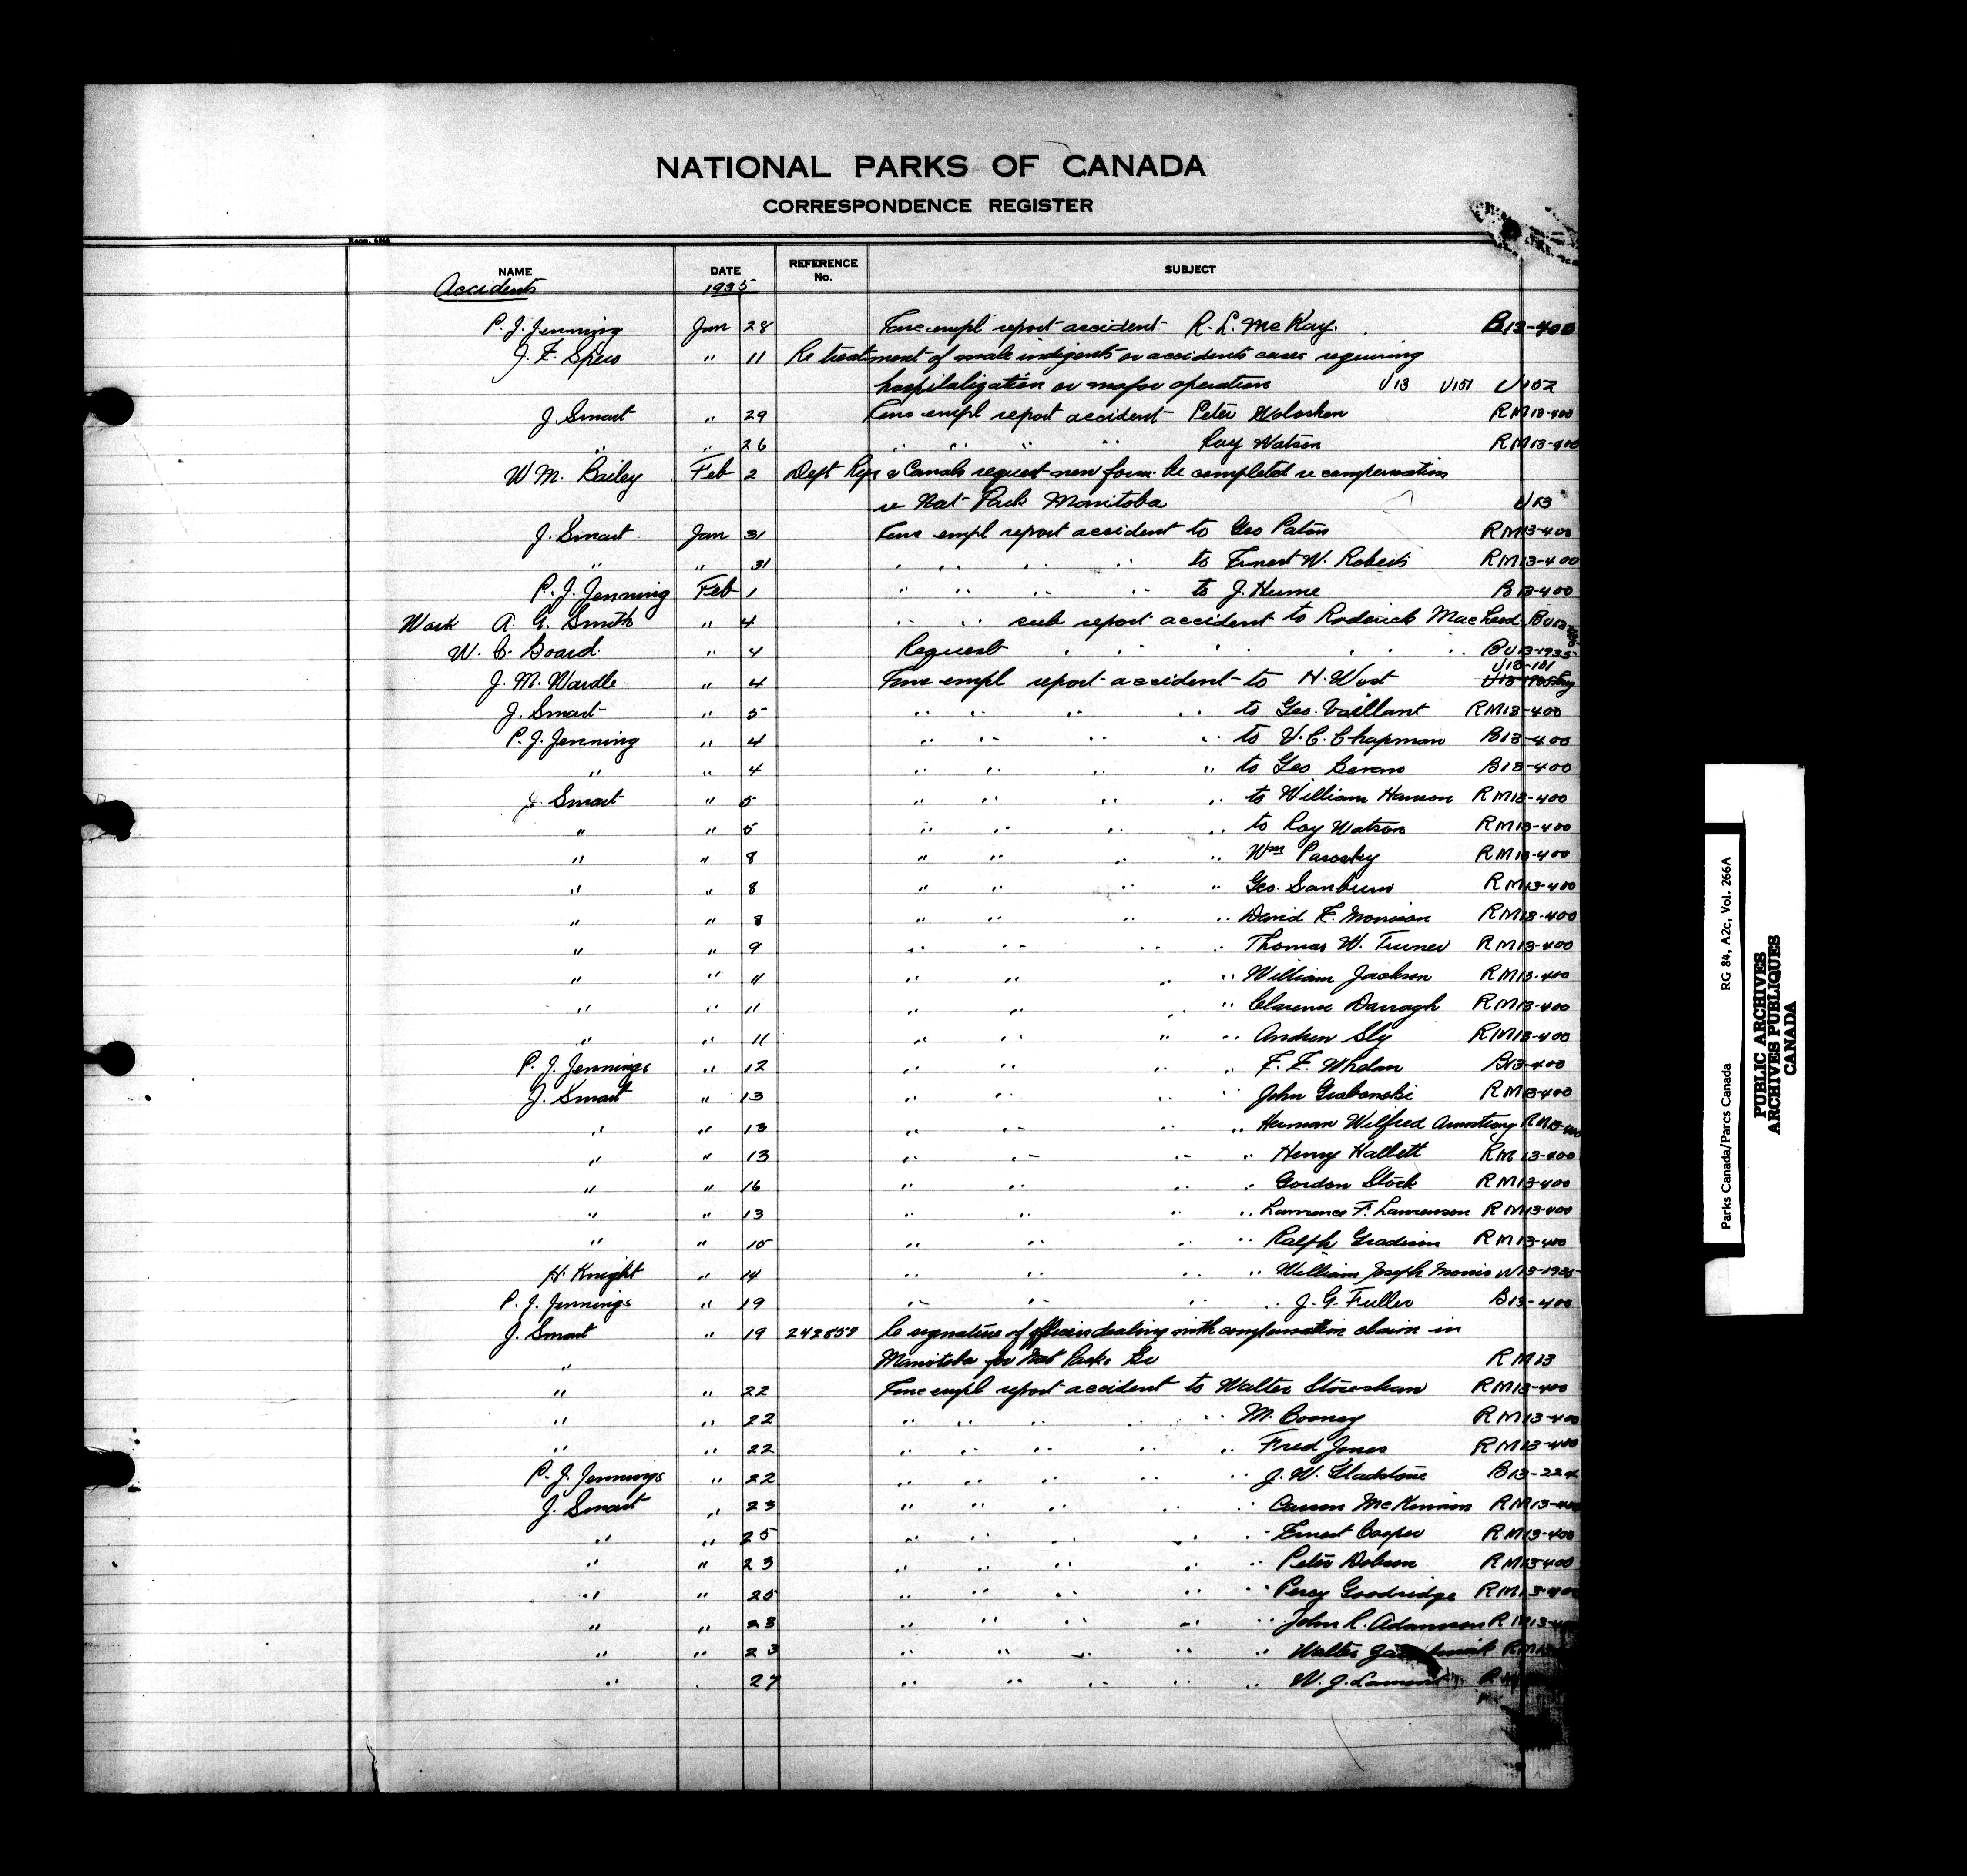 NATIONAL PARKS OF CANADA
CORRESPONDENCE REGISTER
NAME DATE REFERENCE No. SUBJECT
Accidents 1935
P. J. Jenning Jan 28 empl report accident R. L. McKay. B13-400
J. F. " 11 Re treatment of male indigents or accidents cases requiring
hospitalization or major operation U13 U151 U152
J. Smart " 29 empl report accident Peter Woloshen RM13-400
" " 26 " " " " Roy Watson RM13-400
W M. Bailey Feb 2 Dept Rys & Canals request new form be completed re compensation
re Nat Park Manitoba U13
J. Smart Jan 31 empl report accident to Geo Paton RM13-400
" " 31 " " " " to Ernest W. Roberts RM13-400
P. J. Jenning Feb 1 " " " " to J. Hume B13-400
Work A. G. Smith " 4 " " sub report accident to Roderick MacLeod BU13
W. C. Board. " 4 Request " " " " " " BU13-1935
U13-101
J. M. Wardle " 4 empl report accident to H. West
J. Smart " 5 " " " " to Geo. Vaillant RM13-400
P. J. Jenning " 4 " " " " to V. C. Chapman B13-400
" " 4 " " " " to Geo Bevan B13-400
J. Smart " 5 " " " " to William Hanson RM13-400
" " 5 " " " " to Roy Watson RM13-400
" " 8 " " " " Wm Parosky RM13-400
" " 8 " " " " Geo. Sanburn RM13-400
" " 8 " " " " David F. Morrison RM13-400
" " 9 " " " " Thomas W. Turner RM13-400
" " 11 " " " " William Jackson RM13-400
" " 11 " " " " Clarence Darragh RM13-400
" " 11 " " " " Andrew Sly RM13-400
P. J. Jennings " 12 " " " " F. F. Whelan B13-400
J. Smart " 13 " " " " John Grabowski RM13-400
" " 13 " " " " Herman Wilfred Armstrong RM13-400
" " 13 " " " " Henry Hallett RM13-400
" " 16 " " " " Gordon Stock RM13-400
" " 13 " " " " Lawrence F. Lawrenson RM13-400
" " 15 " " " " Ralph Gradison RM13-400
H. Knight " 14 " " " " William Joseph Morris W13-1935
P. J. Jennings " 19 " " " " J. G. Fuller B13-400
J. Smart " 19 242859 Re signature of officers dealing with compensation claim in
" Manitoba for Nat Parks RM13
" " 22 empl report accident to Walter RM13-400
" " 22 " " " " " M. Cooney RM13-400
" " 22 " " " " " Fred Jones RM13-400
P. J. Jennings " 22 " " " " " J. W. Gladstone B13-224
J. Smart " 23 " " " " " Carson McKinnon RM13-400
" " 25 " " " " " Ernest Cooper RM13-400
" " 23 " " " " " Peter Dobson RM13-400
" " 25 " " " " " Percy Goodridge RM13-400
" " 23 " " " " " John R. Adamson RM13-400
" " 23 " " " " " Walter RM13
" " 27 " " " " " W. J. Lamont
Parks Canada/Parcs Canada RG 84, A2c, Vol. 266A
PUBLIC ARCHIVES
ARCHIVES PUBLIQUES
CANADA